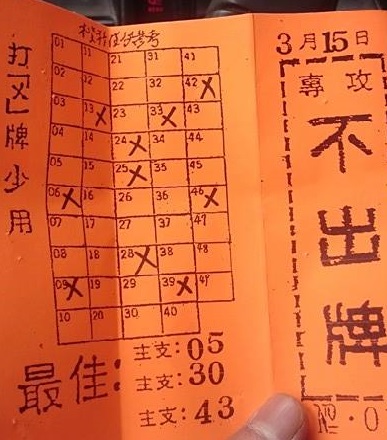 供參考
打「X」牌少用
01 11 21 31 41
02 12 22 32 42 X
03 13 X 23 33 X 43
04 14 24 X 34
05 15 25 X 35 45
06 X 16 26 36 46 X
07 17 27 37 47
08 18 28 X 38 48
09 X 19 29 39 X 49
10 20 30 40
最佳:
主支:05
主支:30
主支:43
3月15日
專攻
不出牌
No.0